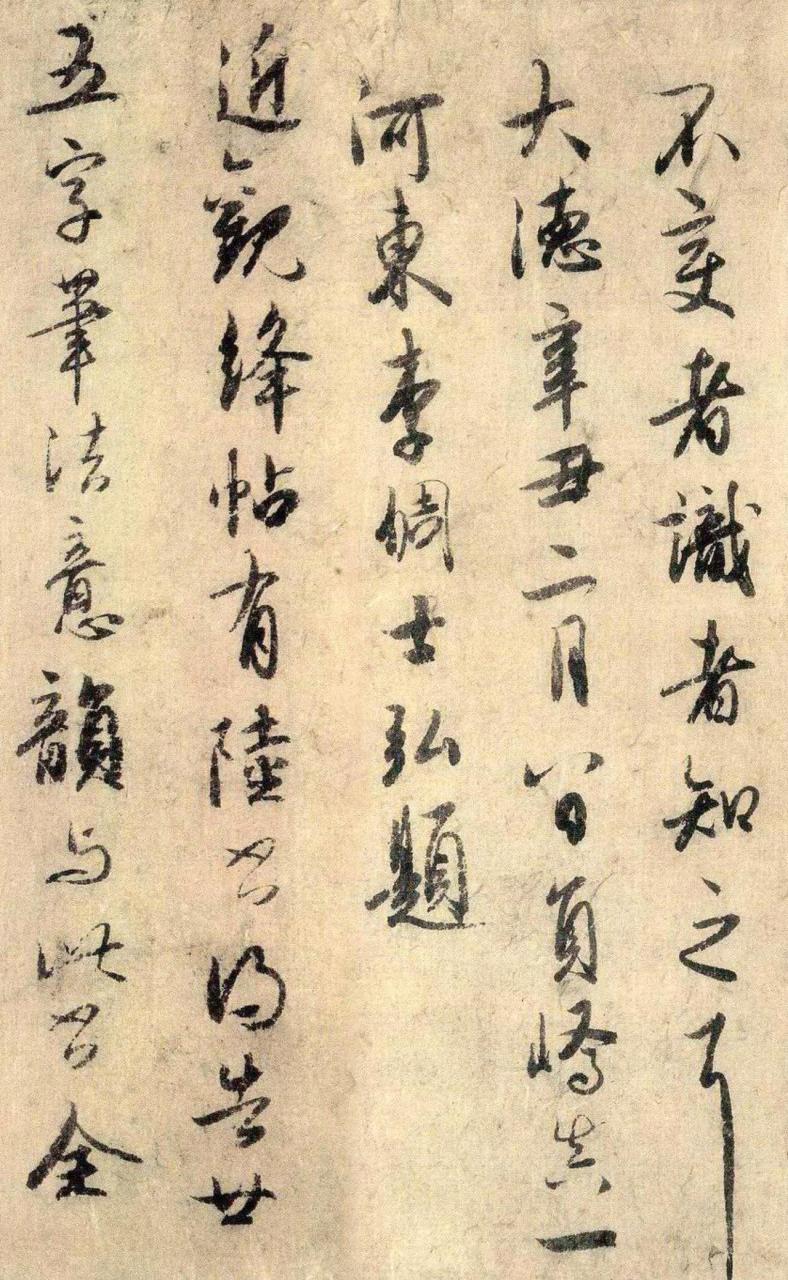 不變者識者知之耳
大德辛丑二月八日員嶠真一
河東李倜士弘題
近觀絳帖有陸書得告廿
五字筆法意韻与此書全